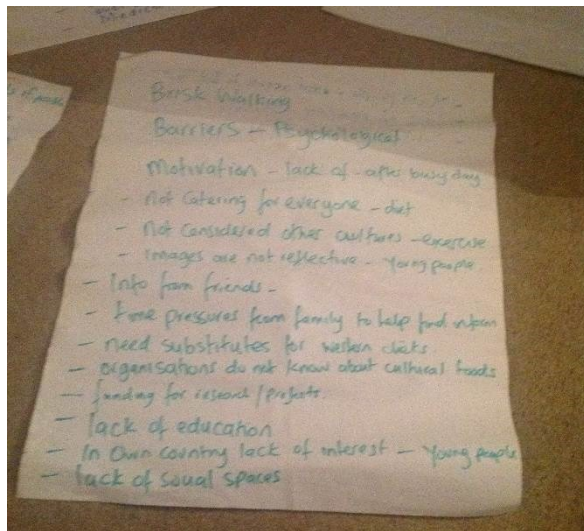 Brisk Walking
Barriers - Psychological
Motivation - lack of - after busy day
- Not Catering for everyone - diet
- Not Considered other cultures - exercise
- Images are not reflective - Young people
- Info from friends -
- time pressures from family to help find inform
- need substitutes for western diets
- organisations do not know about cultural foods
- funding for research / projects.
- lack of education
- In Own country lack of interest - Young people
- lack of social spaces